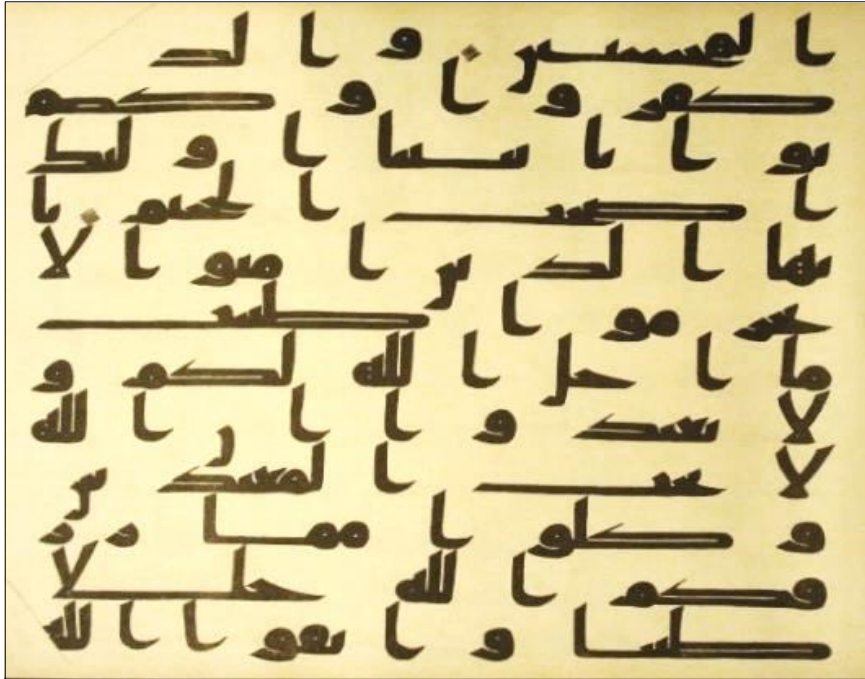 المحسنين والذين
كفروا وكذ
بوا بايتنا اولئك
اصحب الجحيم يا
يها الذين امنوا لا
تحرموا طيبت
ما احل الله لكم و
لا تعتدوا ان الله
لا يحب المعتدين
وكلوا مما رز
قكم الله حللا
طيبا واتقوا الله